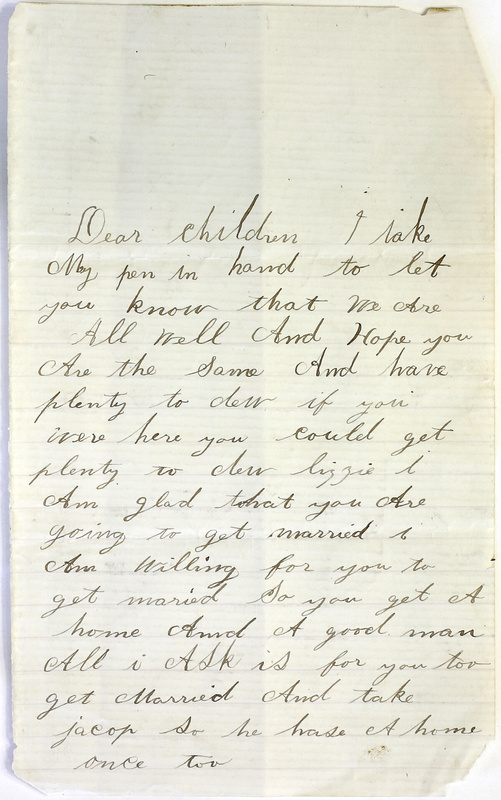 Dear children I take
My pen in hand to let
you know that We Are
All Well And Hope you
Are the Same And have
plenty to dew if you
were here you could get
plenty to dew lizzie i
Am glad that you Are
going to get married i
Am Willing for you to
get maried So you get A
home Annd A good man
All i ASk is for you too
get Married And take
jacop So he hase A home
once too